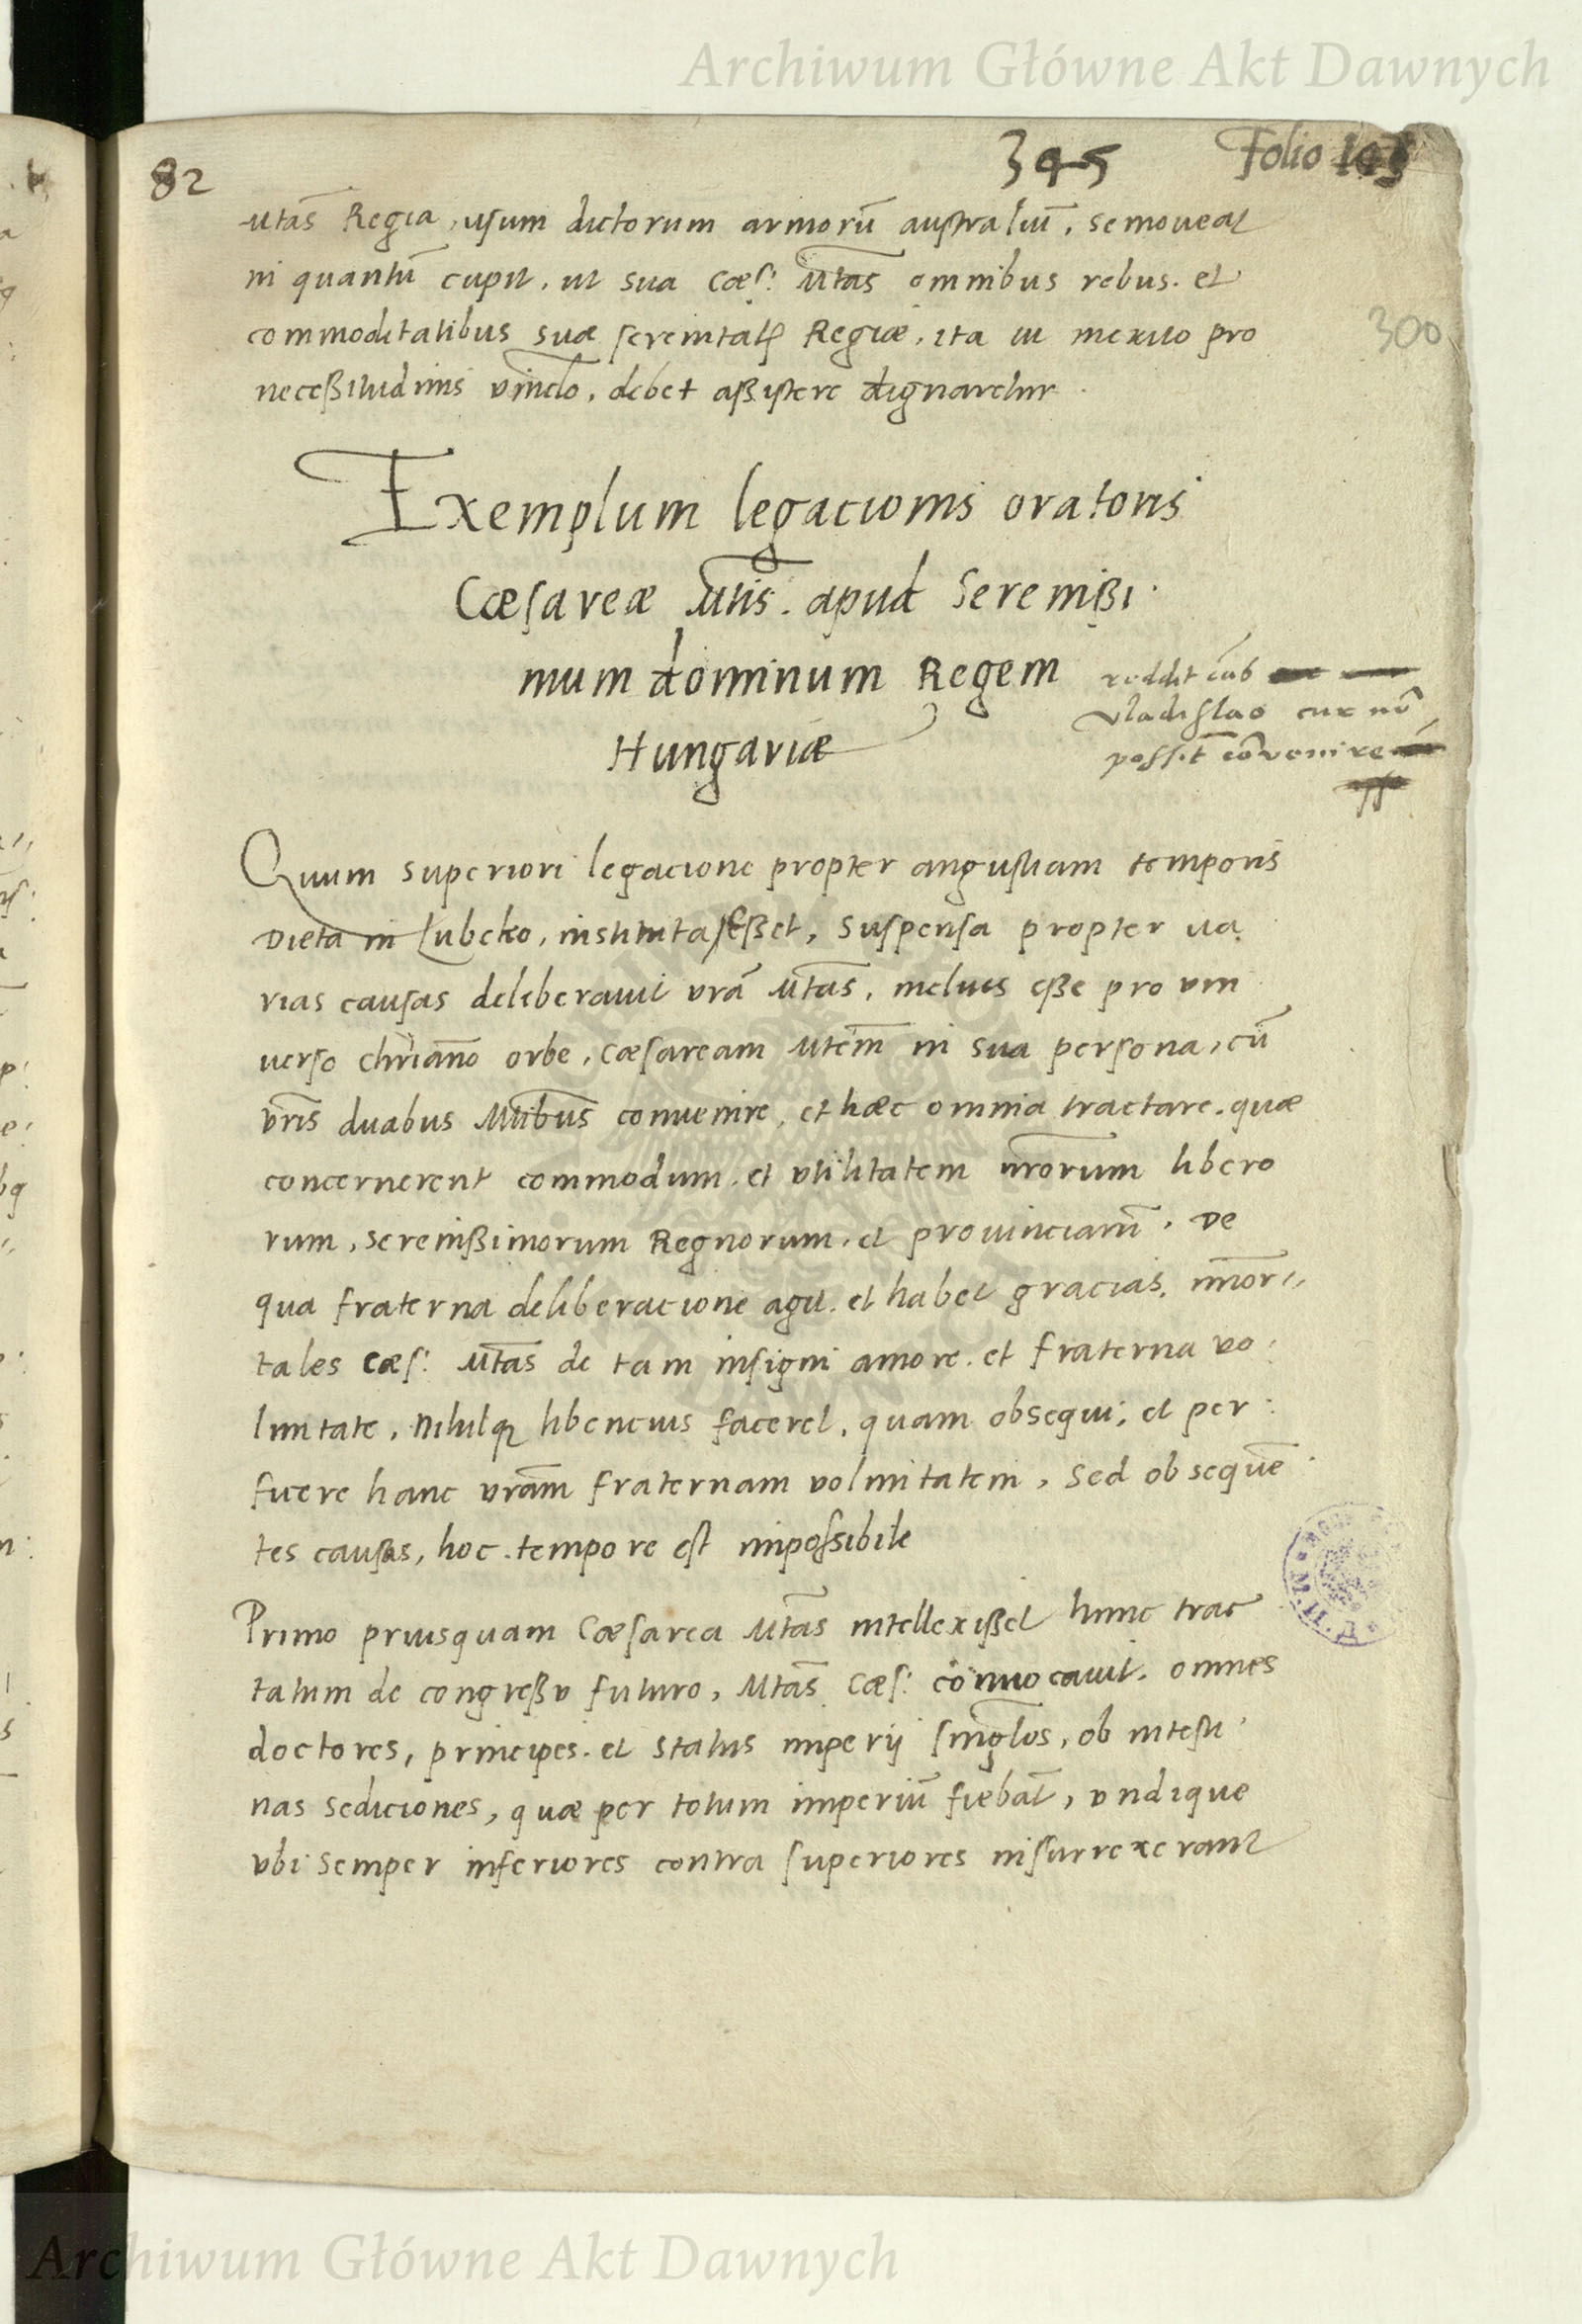 Archiwum Główne Akt Dawnych
82
345 Folio
Mtas Regia, usum dictorum armorũ australiũ, se moveat
in quantũ cupit, ut sua Cæs: Mtas omnibus rebus. et
commoditatibus suæ serenitatis Regiæ, ita ut merito pro
300
necessitudinis vinclo, debet assistere dignaretur.
Exemplum legacionis oratoris
Cæsareæ Mtis. apud Serenissi
mum dominum Regem
Hungariæ
reddit
Vladislao cur nõ
possit cõvenire
Quum superiori legacione propter angustiam temporis
Dieta in Lubeko, instituta esset, suspensa propter va
rias causas deliberavit vrã Mtas, melius esse pro uni
verso chriãno orbe, Cæsaream Mtem in sua persona, cũ
vris duabus Mtibus convenire, et hæc omnia tractare. quæ
concernerent commodum. et utilitatem vrorum libero
rum, serenissimorum Regnorum. et provinciarũ. De
qua fraterna deliberacione agit. et habet gracias. im̃or
tales Cæs: Mtas de tam insigni amore. et fraterna vo
luntate, nihilq libencius faceret, quam obsequi, et per
ficere hanc vram fraternam voluntatem, sed ob sequẽ
tes causas, hoc. tempore est impossibile
Primo priusquam Cæsarea Mtas intellexisset hunc trac
tatum de congressu futuro, Mtas Cæs: convocavit. omnes
doctores, principes. et status imperij singlos, ob intesti
nas sediciones, quæ per totum imperiũ fiebãt, undique
ubi semper inferiores contra superiores insurrexerant
Archiwum Główne Akt Dawnych